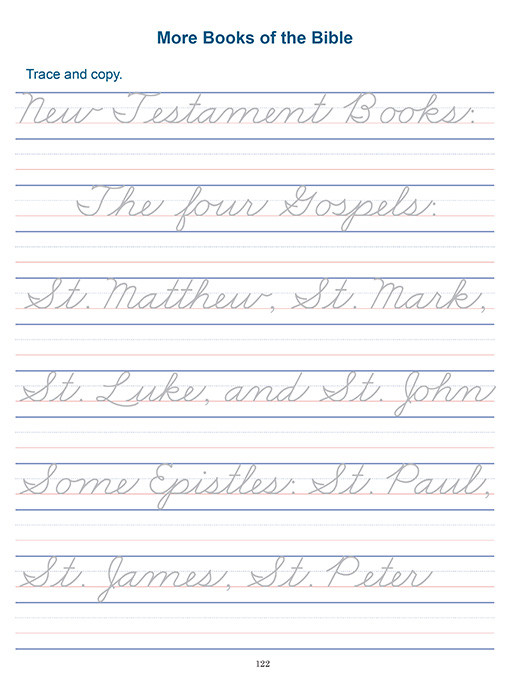 More Books of the Bible
Trace and copy.
New Testament Books:
The four Gospels:
St. Matthew, St. Mark,
St. Luke, and St. John
Some Epistles: St. Paul,
St. James, St. Peter
122